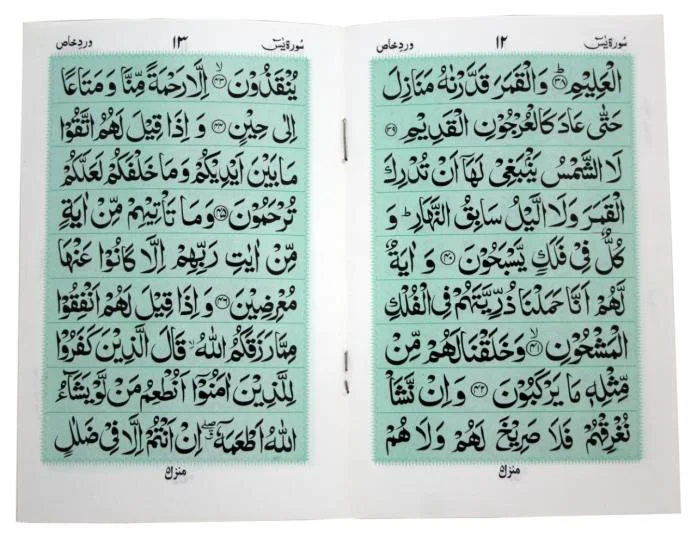 سُورَة یٰسٓ ۱۲ وردِ خاص
الْعَلِیْمِ ؕ﴿۳۸﴾ وَالْقَمَرَ قَدَّرْنٰهُ مَنَازِلَ
حَتّٰی عَادَ كَالْعُرْجُوْنِ الْقَدِیْمِ ﴿۳۹﴾
لَا الشَّمْسُ یَنْۢبَغِیْ لَهَاۤ اَنْ تُدْرِكَ
الْقَمَرَ وَلَا الَّیْلُ سَابِقُ النَّهَارِ ؕ وَ
كُلٌّ فِیْ فَلَكٍ یَّسْبَحُوْنَ ﴿۴۰﴾ وَ اٰیَةٌ
لَّهُمْ اَنَّا حَمَلْنَا ذُرِّیَّتَهُمْ فِی الْفُلْكِ
الْمَشْحُوْنِ ۙ﴿۴۱﴾ وَخَلَقْنَا لَهُمْ مِّنْ
مِّثْلِهٖ مَا یَرْكَبُوْنَ ﴿۴۲﴾ وَ اِنْ نَّشَاْ
نُغْرِقْهُمْ فَلَا صَرِیْخَ لَهُمْ وَلَا هُمْ
منزل۵
سُورَة یٰسٓ ۱۳ وردِ خاص
یُنْقَذُوْنَ ۙ﴿۴۳﴾ اِلَّا رَحْمَةً مِّنَّا وَ مَتَاعًا
اِلٰی حِیْنٍ ﴿۴۴﴾ وَ اِذَا قِیْلَ لَهُمُ اتَّقُوْا
مَا بَیْنَ اَیْدِیْكُمْ وَ مَا خَلْفَكُمْ لَعَلَّكُمْ
تُرْحَمُوْنَ ﴿۴۵﴾ وَ مَا تَاْتِیْهِمْ مِّنْ اٰیَةٍ
مِّنْ اٰیٰتِ رَبِّهِمْ اِلَّا كَانُوْا عَنْهَا
مُعْرِضِیْنَ ﴿۴۶﴾ وَ اِذَا قِیْلَ لَهُمْ اَنْفِقُوْا
مِمَّا رَزَقَكُمُ اللّٰهُ ۙ قَالَ الَّذِیْنَ كَفَرُوْا
لِلَّذِیْنَ اٰمَنُوْۤا اَنُطْعِمُ مَنْ لَّوْ یَشَآءُ
اللّٰهُ اَطْعَمَهٗۤ ۖ اِنْ اَنْتُمْ اِلَّا فِیْ ضَلٰلٍ
منزل۵